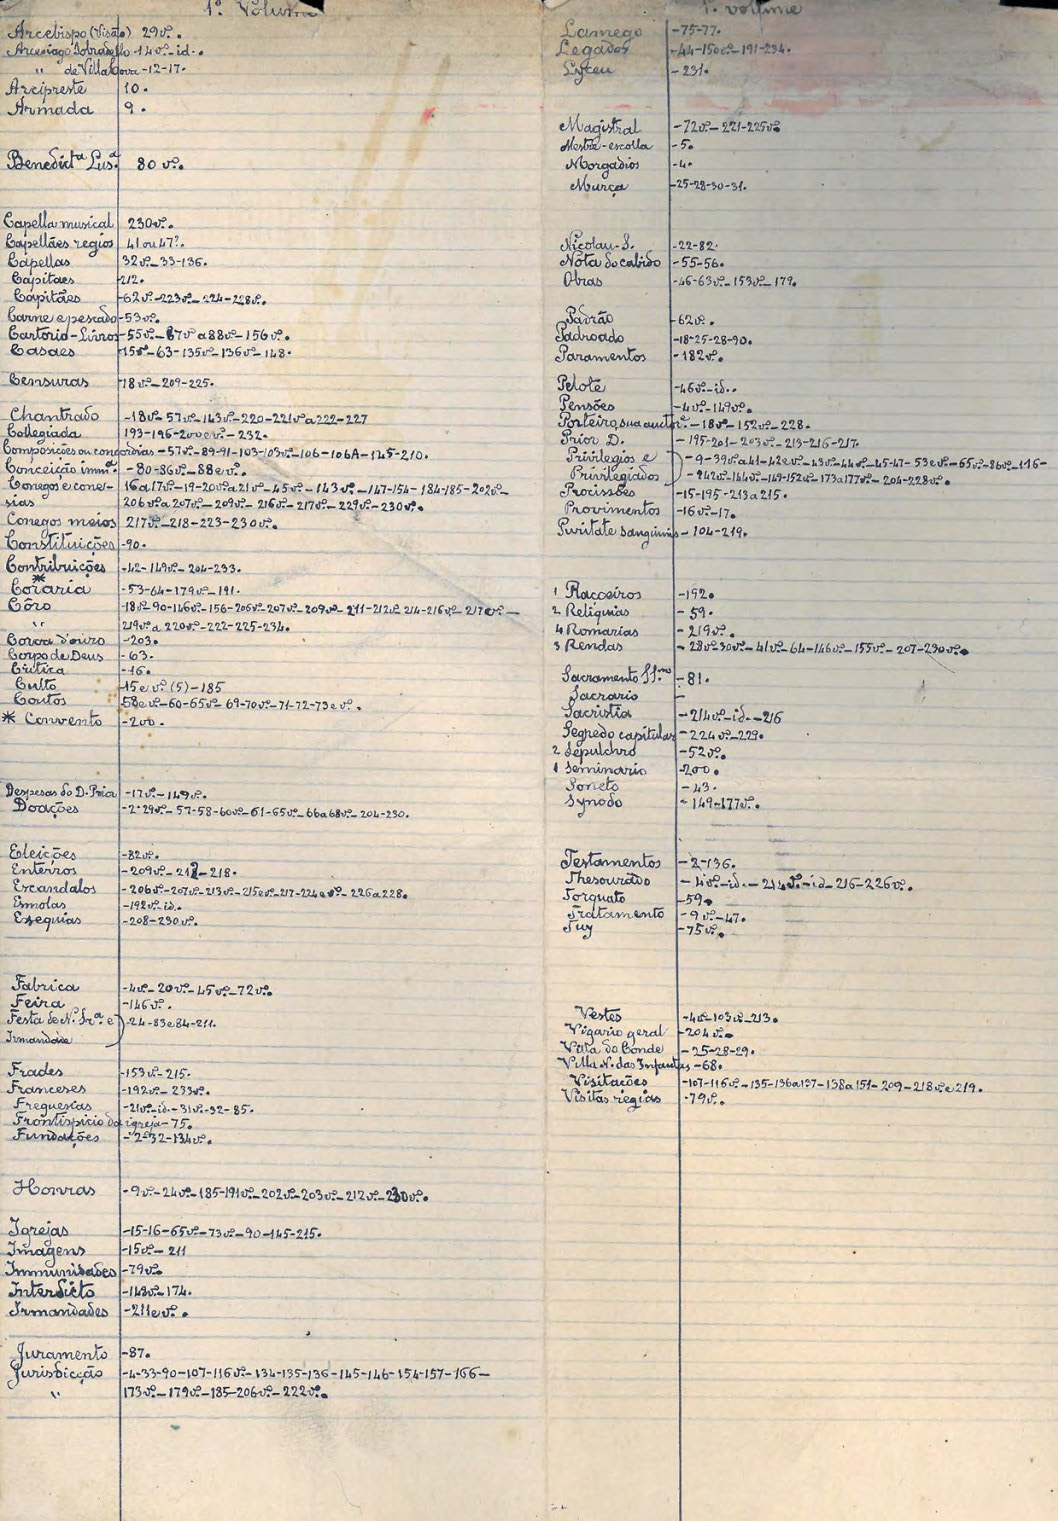 1º. Volume
Arcebispo (Visão) 29vº.
Arcediago Sobradello 14vº-id.
" de Villa Cova -12-17.
Arcipreste 10.
Armada 9.
Benedictª Lusª. 80 vº.
Capella musical 230vº.
Capellães regios 41 ou 47?.
Capellas 32vº-33-136.
Capitaes 212.
Capitães -62vº-223vº-224-228vº.
Carne e pescado -53vº.
Cartorio-Livros -55vº-87vº a 88vº-156vº.
Casaes -15vº-63-135vº-136vº-148.
Censuras -18vº-209-225.
Chantrado -18vº-57vº-143vº-220-221vº a 222-227
Collegiada 193-196-200 e vº-232.
Composições ou concordias -57vº-89-91-103-103vº-106-106A-145-210.
Conceição immª. -80-86vº-88 e vº.
Conegos e cone- 16 a 17vº-19-20vº a 21vº-45vº-143vº-147-154-184-185-202vº-
sias 206vº a 207vº-209vº-216vº-217vº-229vº-230vº.
Conegos meios 217vº-218-223-230vº.
Constituições -90.
Contribuições -42-149vº-204-233.
* Coraria -53-64-179vº-191.
Côro -18vº-90-146vº-156-206vº-207vº-209vº-211-212vº-214-216vº-217vº-
" 219vº a 220vº-222-225-234.
Coroa d'ouro -203.
Corpo de Deus -63.
Critica -16.
Culto -15 e vº (5)-185
Coutos 58 e vº-60-65vº-69-70vº-71-72-73 e vº.
* Convento -200.
Despesas do D. Prior -17vº-149vº.
Doações -2-29vº-57-58-60vº-61-65vº-66 a 68vº-204-230.
Eleições -82vº.
Enterros -209vº-212-218.
Escandalos -206vº-207vº-213vº-215 e vº-217-224 e vº-226 a 228.
Esmolas -192vº-id.
Exequias -208-230vº.
Fabrica -4vº-20vº-45vº-72vº.
Feira -146vº.
Festa de N. Srª. e -24-83 e 84-211.
Irmandade
Frades -153vº-215.
Franceses -192vº-233vº.
Freguesias -21vº-id-31vº-32-85.
Frontispicio da igreja -75.
Fundações -2-32-134vº.
Honras -9vº-24vº-185-191vº-202vº-203vº-212vº-230vº.
Igrejas -15-16-65vº-73vº-90-145-215.
Imagens -15vº-211
Immunidades -79vº.
Interdicto -148vº-174.
Irmandades -211 e vº.
Juramento -87.
Jurisdicção -4-33-90-107-116vº-134-135-136-145-146-154-157-166-
" 173vº-179vº-185-206vº-222vº.
1º. volume
Lamego -75-77.
Legados -44-150vº-191-234.
Lyceu -231.
Magistral -72vº-221-225vº
Mestre-escolla -5.
Morgadios -4.
Murça -25-28-30-31.
Nicolau-S. -22-82.
Nota do cabido -55-56.
Obras -46-63vº-153vº-179.
Padrão -62vº.
Padroado -18-25-28-90.
Paramentos -182vº.
Pelote -46vº-id.
Pensões -4vº-149vº.
Porteiro, sua auctorº. -18vº-152vº-228.
Prior D. -195-201-203vº-213-216-217.
Privilegios e -9-39vº a 41-42 e vº-43vº-44vº-45-47-53 e vº-65vº-86vº-116-
Privilegiados -142vº-144vº-149-152vº-173 a 177vº-204-228vº.
Procissões -15-195-213 a 215.
Provimentos -16vº-17.
Puritate sanguinis -104-219.
1 Racoeiros -192.
2 Reliquias -59.
4 Romarias -219vº.
3 Rendas -28vº 30vº-41vº-64-146vº-155vº-207-230vº.
Sacramento SS.mo -81.
Sacrario -
Sacristia -214vº-id-216
Segredo capitular -224vº-229.
2 Sepulchro -52vº.
1 Seminario -200.
Soneto -43.
Synodo -149-177vº.
Testamentos -2-136.
Thesourado -4vº-id-214vº-id-216-226vº.
Torquato -59.
Tratamento -9vº-47.
Tuy -75vº.
Vestes -4vº-103vº-213.
Vigario geral -204vº.
Villa do Conde -25-28-29.
Villa N. das Infantas -68.
Visitações -107-116vº-135-136 a 137-138 a 151-209-218vº e 219.
Visitas regias -79vº.